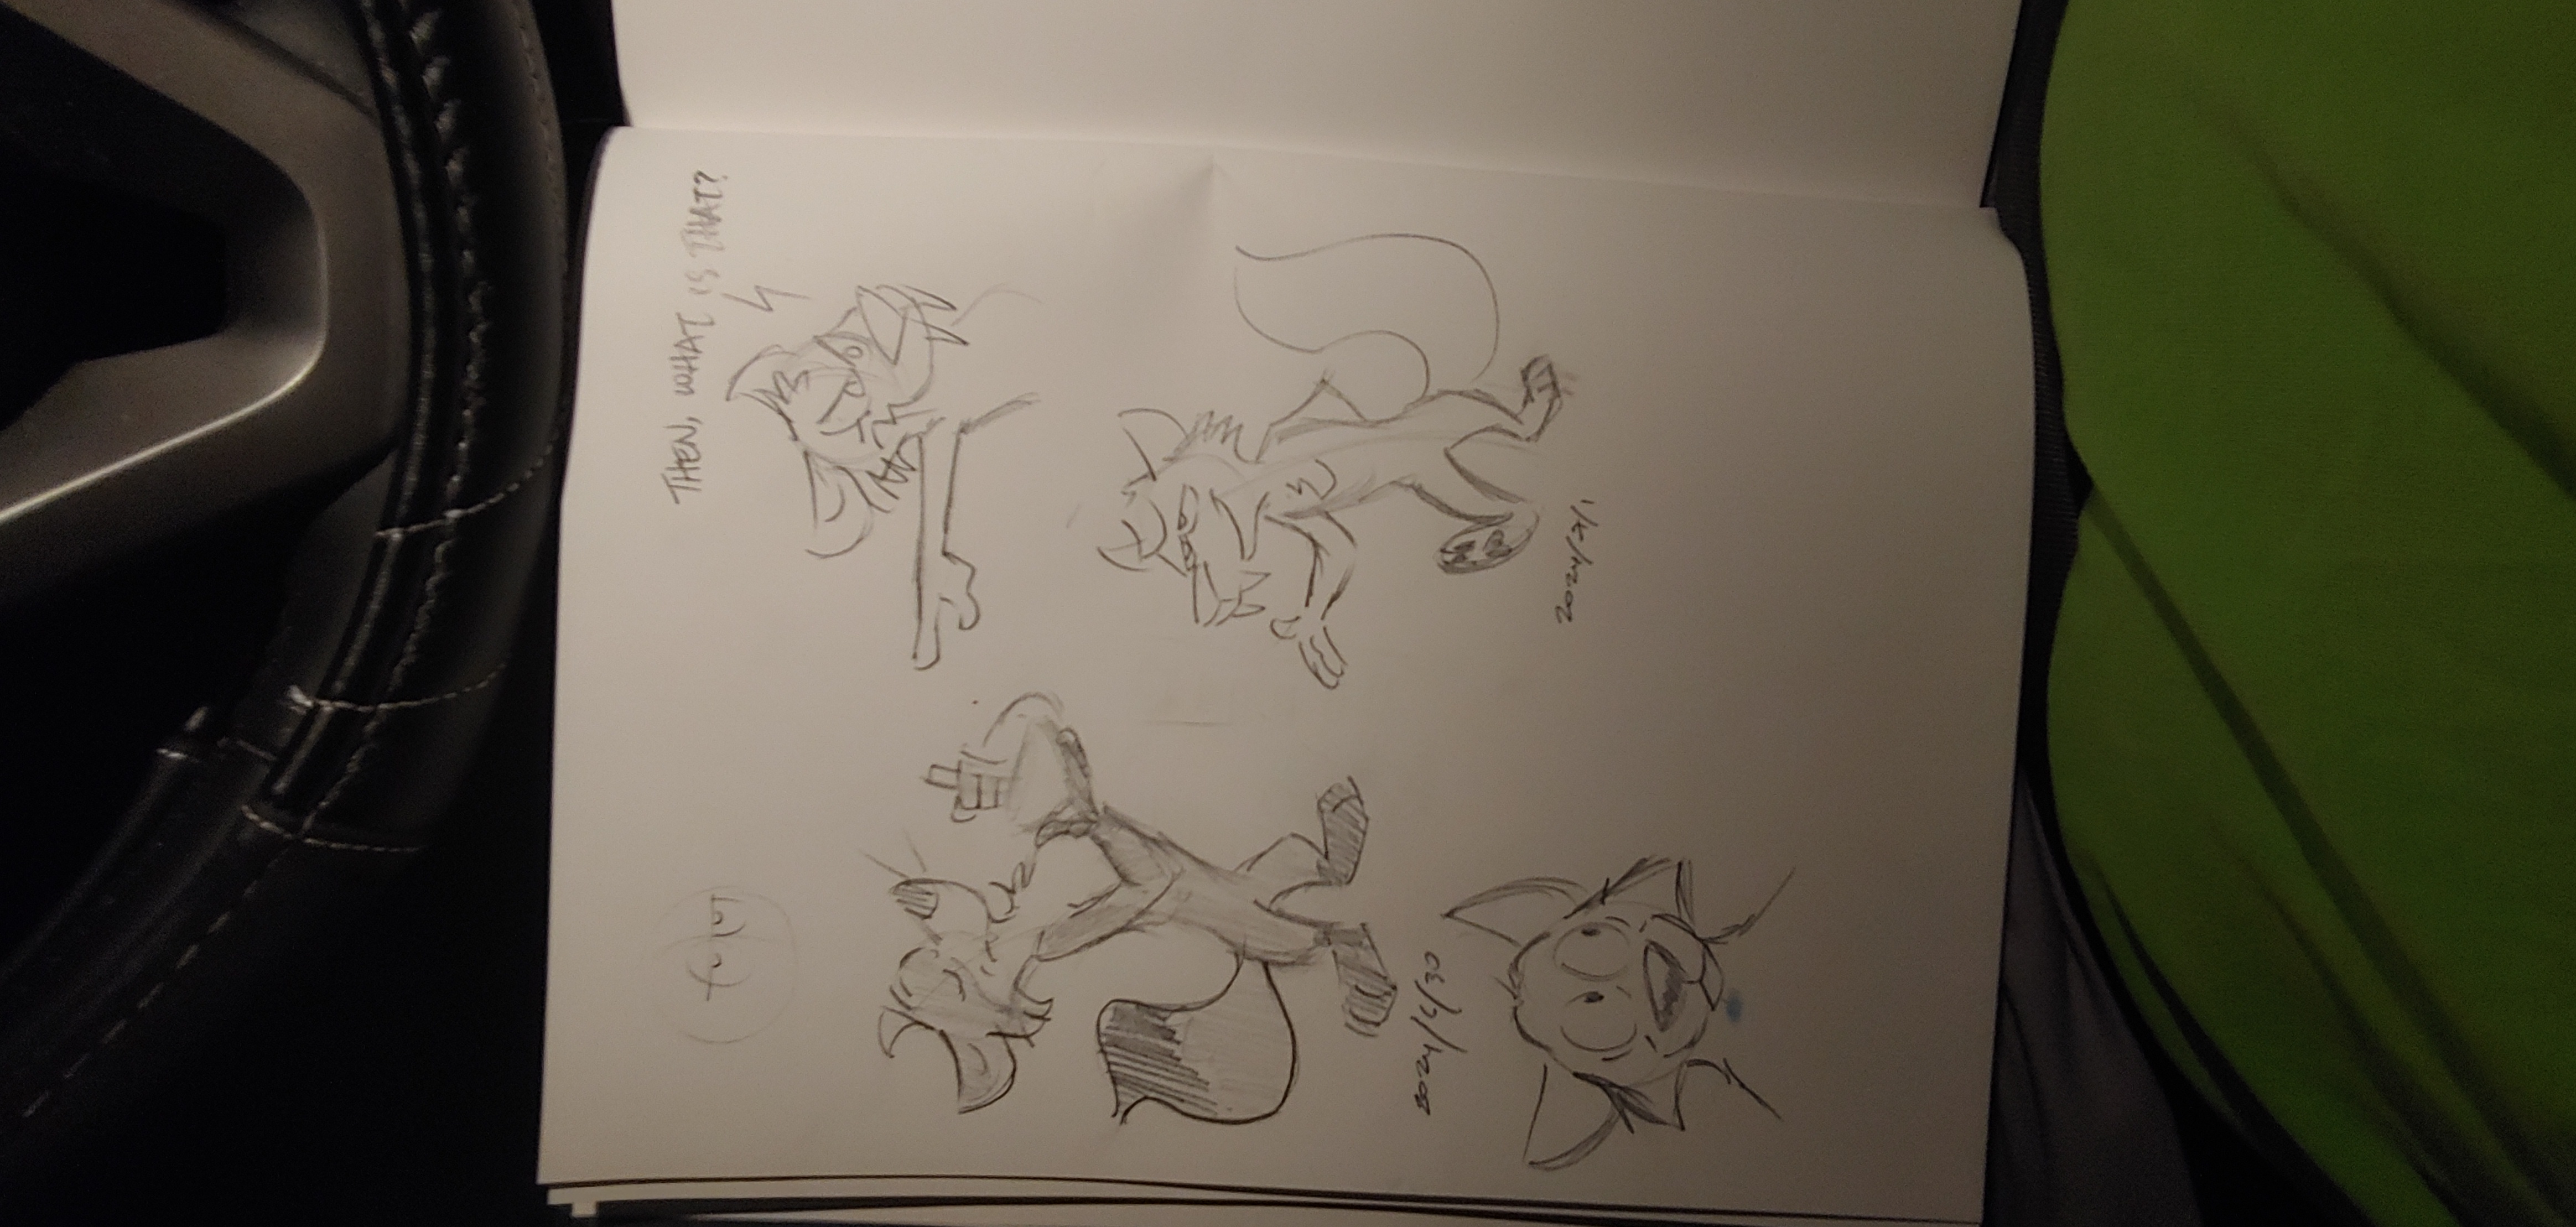 THEN, WHAT IS THAT?
2024/6/30
2024/7/1